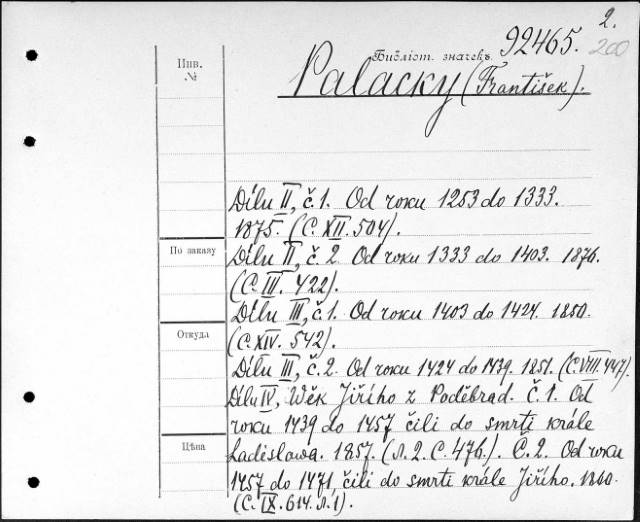 2.
Библіот. значекъ 92465.
200
Инв.
№
Palacky (František).
Dílu II, č. 1. Od roku 1253 do 1333.
1875. (C. XII. 504).
По заказу
Dílu II, č. 2. Od roku 1333 do 1403. 1876.
(C. III. 422).
Dílu III, č. 1. Od roku 1403 do 1424. 1850.
Откуда
(C. XIV. 542).
Dílu III, č. 2. Od roku 1424 do 1439. 1851. (C. VIII. 447).
Dílu IV, Wěk Jiřího z Poděbrad. Č. 1. Od
roku 1439 do 1457 čili do smrti krále
Цѣна
Ladislawa. 1857. (Л. 2. C. 476.). Č. 2. Od roku
1457 do 1471, čili do smrti krále Jiřího. 1860.
(C. IX. 614. Л. 1).